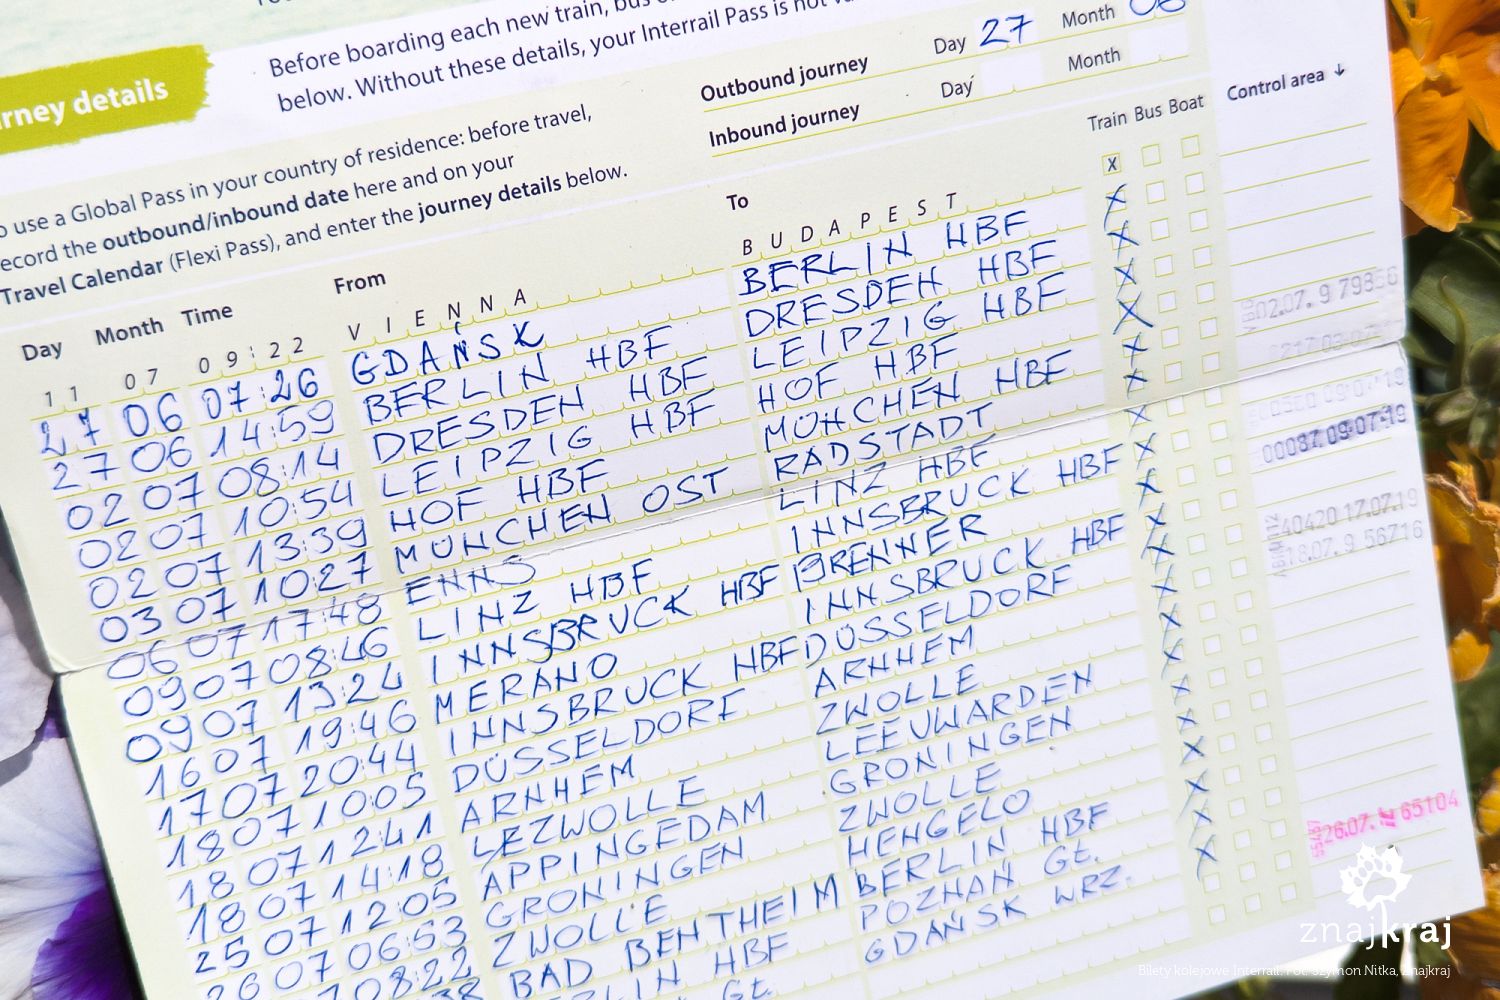 Before boarding each new train, bus
below. Without these details, your Interrail Pass is not
rney details
Outbound journey Day 27 Month 06
Inbound journey Day Month
use a Global Pass in your country of residence: before travel,
ecord the outbound/inbound date here and on your
Travel Calendar (Flexi Pass), and enter the journey details below.
Train Bus Boat Control area ↓
Day Month Time From To
11 07 09:22 VIENNA BUDAPEST x
27 06 07:26 GDAŃSK BERLIN HBF X
27 06 14:59 BERLIN HBF DRESDEN HBF X
02 07 08:14 DRESDEN HBF LEIPZIG HBF X
02 07 10:54 LEIPZIG HBF HOF HBF X
02 07 13:39 HOF HBF MÜNCHEN HBF X
03 07 10:27 MÜNCHEN OST RADSTADT X
06 07 17:48 ENNS LINZ HBF X
09 07 08:46 LINZ HBF INNSBRUCK HBF X
09 07 13:24 INNSBRUCK HBF BRENNER X
16 07 19:46 MERANO INNSBRUCK HBF X
17 07 20:44 INNSBRUCK HBF DÜSSELDORF X
18 07 10:05 DÜSSELDORF ARNHEM X
18 07 12:41 ARNHEM ZWOLLE X
18 07 14:18 ZWOLLE LEEUWARDEN X
25 07 12:05 APPINGEDAM GRONINGEN X
26 07 06:53 GRONINGEN ZWOLLE X
07 08:22 ZWOLLE HENGELO X
BAD BENTHEIM BERLIN HBF X
RLIN HBF POZNAŃ Gt. X
Gt. GDAŃSK WRZ. X
02.07. 9 79356
00087.09-07-19
40420 17.07.19
18.07. 9 56716
26.07. 65104
znajkraj
Bilety kolejowe Interrail. Fot. Szymon Nitka, Znajkraj